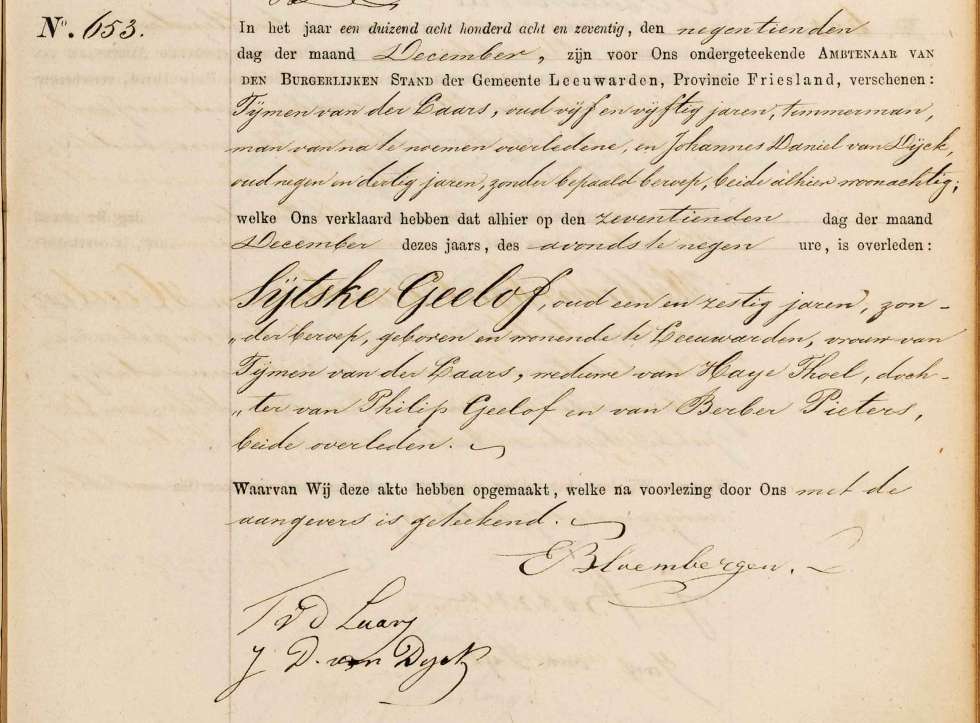 No. 653.
In het jaar een duizend acht honderd acht en zeventig, den negentienden
dag der maand December, zijn voor Ons ondergeteekende AMBTENAAR VAN
DEN BURGERLIJKEN STAND der Gemeente Leeuwarden, Provincie Friesland, verschenen:
Tijmen van der Laars, oud vijf en vijftig jaren, timmerman,
man van na te noemen overledene, en Johannes Daniel van Dijck,
oud negen en dertig jaren, zonder bepaald beroep, beide alhier woonachtig;
welke Ons verklaard hebben dat alhier op den zeventienden dag der maand
December dezes jaars, des avonds te negen ure, is overleden:
Sijtske Geelof, oud een en zestig jaren, zon-
„der beroep, geboren en wonende te Leeuwarden, vrouw van
Tijmen van der Laars, weduwe van Haye Thoel, doch-
„ter van Philip Geelof en van Berber Pieters,
beide overleden.
Waarvan Wij deze akte hebben opgemaakt, welke na voorlezing door Ons met de
aangevers is geteekend.
E Bloembergen.
T vd Laars
J D. van Dyck